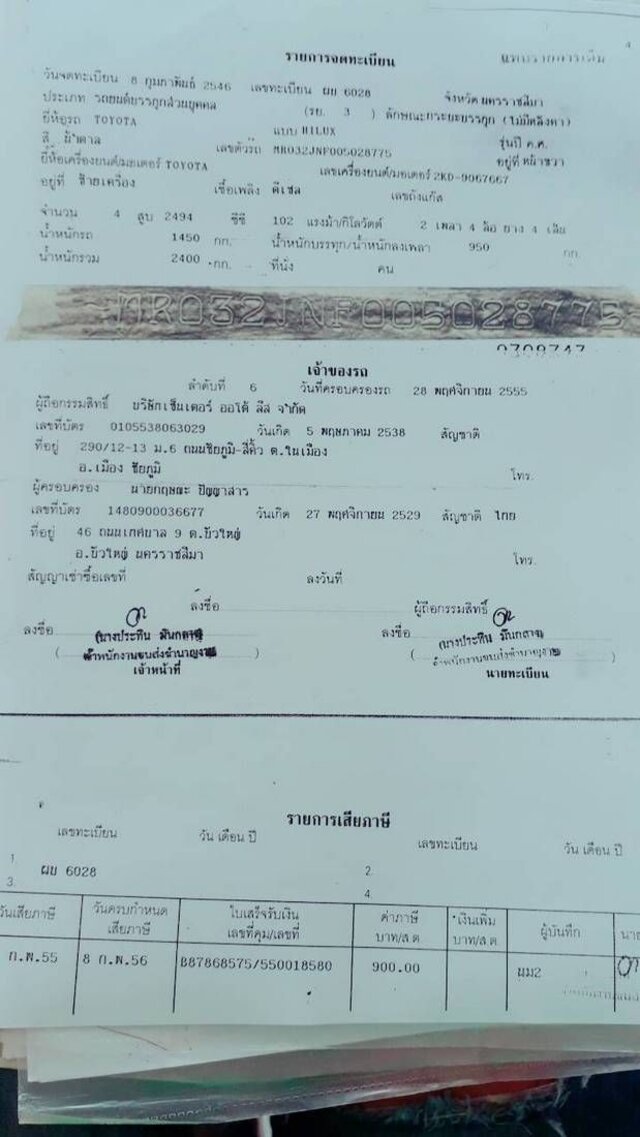 รายการจดทะเบียน
วันจดทะเบียน 8 กุมภาพันธ์ 2546 เลขทะเบียน ผย 6028 จังหวัด นครราชสีมา
ประเภท รถยนต์บรรทุกส่วนบุคคล (รย. 3 ) ลักษณะกระบะบรรทุก (ไม่มีหลังคา)
ยี่ห้อรถ TOYOTA แบบ HILUX รุ่นปี ค.ศ.
สี น้ำตาล เลขตัวรถ MR032JNF005028775 อยู่ที่ หน้าขวา
ยี่ห้อเครื่องยนต์/มอเตอร์ TOYOTA เลขเครื่องยนต์/มอเตอร์ 2KD-9067667
อยู่ที่ ซ้ายเครื่อง เชื้อเพลิง ดีเซล เลขถังแก๊ส
จำนวน 4 สูบ 2494 ซีซี 102 แรงม้า/กิโลวัตต์ 2 เพลา 4 ล้อ ยาง 4 เส้น
น้ำหนักรถ 1450 กก. น้ำหนักบรรทุก/น้ำหนักลงเพลา 950 กก
น้ำหนักรวม 2400 กก. ที่นั่ง คน
MR032JNF005028775
เจ้าของรถ
ลำดับที่ 6 วันที่ครอบครองรถ 28 พฤศจิกายน 2555
ผู้ถือกรรมสิทธิ์ บริษัทเซ็นเตอร์ ออโต้ ลีส จำกัด
เลขที่บัตร 0105538063029 วันเกิด 5 พฤษภาคม 2538 สัญชาติ
ที่อยู่ 290/12-13 ม.6 ถนนชัยภูมิ-สีคิ้ว ต.ในเมือง
อ.เมือง ชัยภูมิ โทร.
ผู้ครอบครอง นายกฤษณะ ปัญญาสาร
เลขที่บัตร 1480900036677 วันเกิด 27 พฤศจิกายน 2529 สัญชาติ ไทย
ที่อยู่ 46 ถนนเทศบาล 9 ต.บัวใหญ่
อ.บัวใหญ่ นครราชสีมา โทร.
สัญญาเช่าซื้อเลขที่ ลงวันที่
ลงชื่อ ผู้ถือกรรมสิทธิ์
ลงชื่อ ลงชื่อ
(นางประทิน มันกลาง) (นางประทิน มันกลาง)
( เจ้าพนักงานขนส่งชำนาญงาน ) ( เจ้าพนักงานขนส่งชำนาญงาน )
เจ้าหน้าที่ นายทะเบียน
รายการเสียภาษี
เลขทะเบียน วัน เดือน ปี เลขทะเบียน วัน เดือน ปี
1. ผย 6028 2.
3. 4.
วันเสียภาษี วันครบกำหนด เสียภาษี ใบเสร็จรับเงิน เลขที่คุม/เลขที่ ค่าภาษี บาท/ส.ต. เงินเพิ่ม บาท/ส.ต. ผู้บันทึก
ก.พ.55 8 ก.พ.56 B87868575/550018580 900.00 นม2